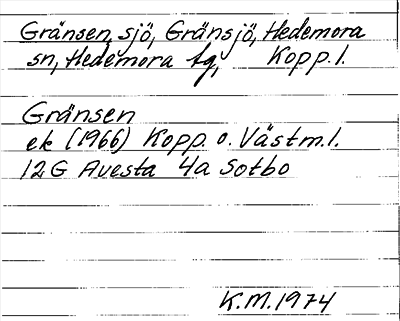 Gränsen, sjö, Gränsjö, Hedemora
sn, Hedemora tg, Kopp. l.
Gränsen
ek (1966) Kopp. o. Västm. l.
12G Avesta 4a Sotbo
K.M. 1974